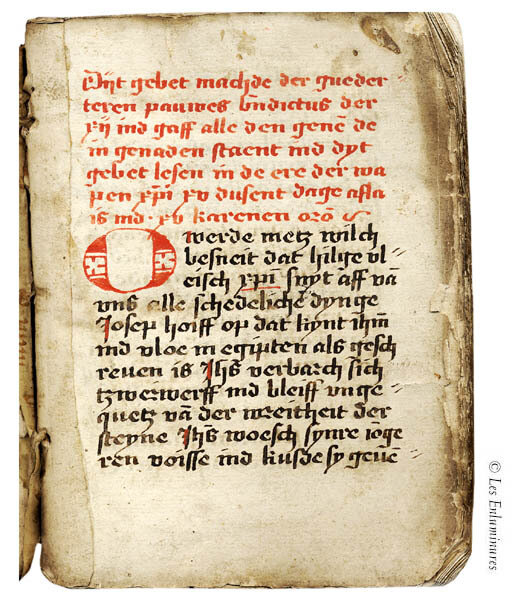 Dyt gebet machde der gueder
teren pauwes bn̄dictus der
xij ind gaff alle den genē de
in genaden staent ind dyt
gebet lesen in de ere der wa
pen xp̄i xv dusent dage afla
is ind · xv karenen orō
O werde metz wilch
besneit dat hilige vl
eisch xp̄i snyt aff vā
vns alle schedeliche dynge
Josep hoiff op dat kynt ihm̄
ind vloe in egipten als gesch
reuen is Jhs̄ verbarch sich
tzwerwerff ind bleiff vnge
quetz vā der wreitheit der
steyne Jhs̄ woesch synre iōge
ren voisse ind kusde sy geuē
© Les Enluminures